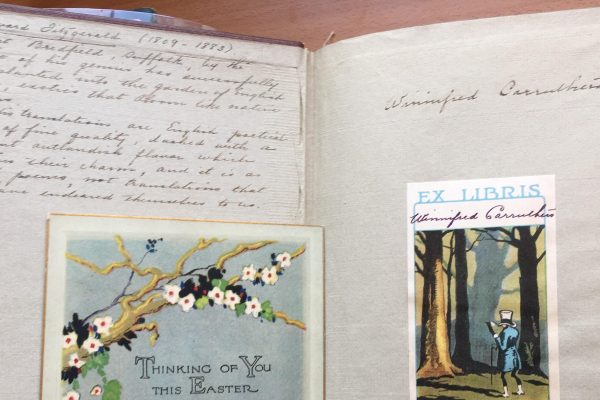 ward Fitzgerald (1809 - 1883).
t Bredfield, Suffolk, by the
e of his genius has successfully
planted into the garden of English
exotics that bloom like native
translations are English poetical
of fine quality, dashed with a
outlandish flavor which
s their charm, and it is as
poems, not translations that
have endeared themselves to us.
THINKING OF YOU
THIS EASTER
Winnifred Carruthers
EX LIBRIS
Winnifred Carruthers